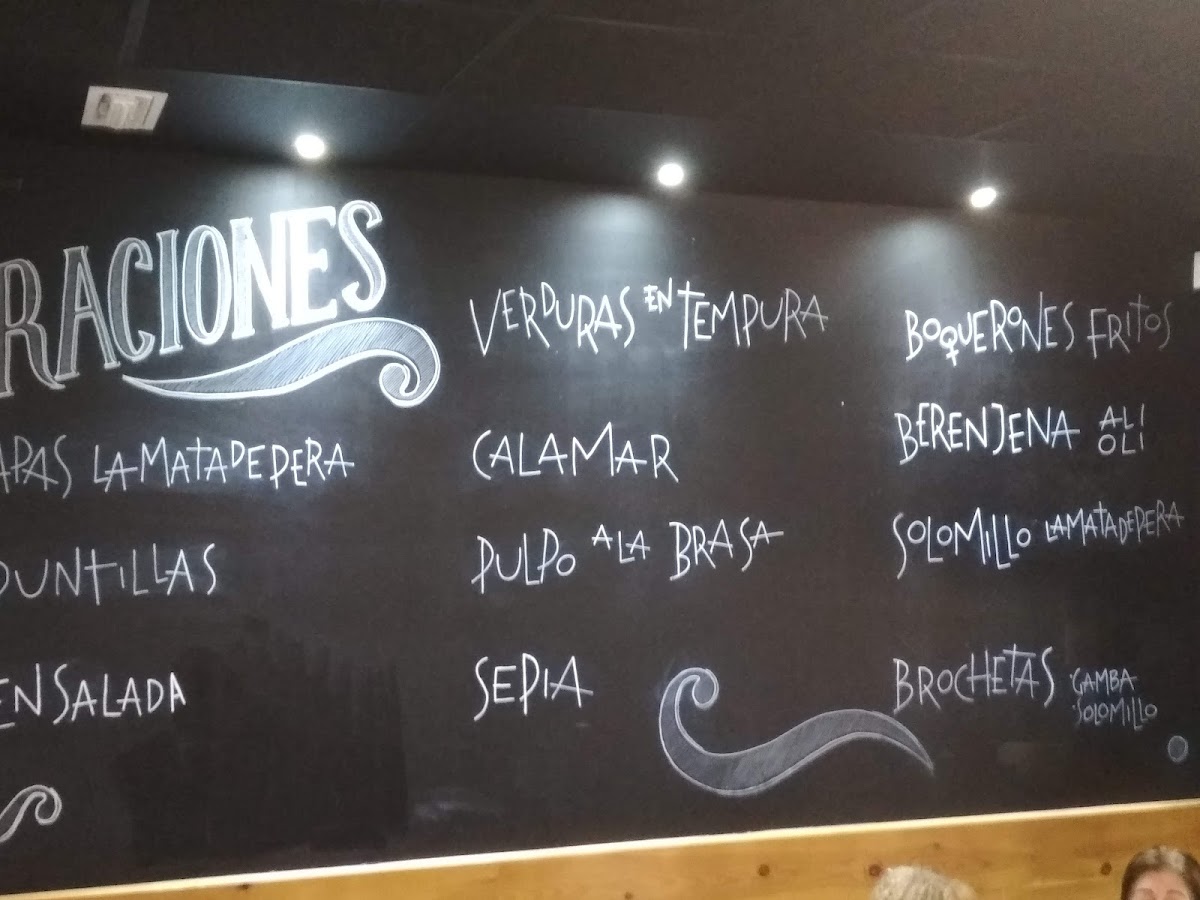 RACIONES
APAS LAMATADEPERA
PUNTILLAS
ENSALADA
VERDURAS EN TEMPURA
CALAMAR
PULPO A LA BRASA
SEPIA
BOQUERONES FRITOS
BERENJENA ALI OLI
SOLOMILLO LAMATADEPERA
BROCHETAS ·GAMBA
·SOLOMILLO